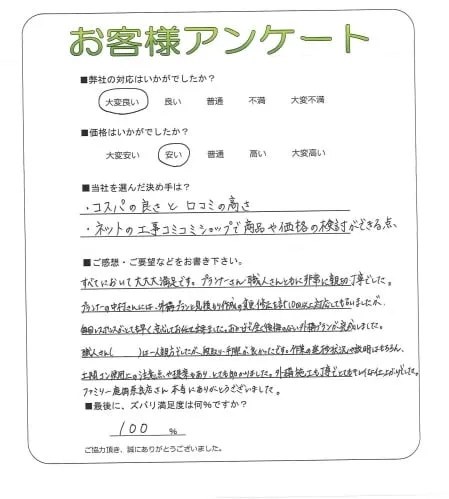 お客様アンケート
■弊社の対応はいかがでしたか?
大変良い 良い 普通 不満 大変不満
■価格はいかがでしたか?
大変安い 安い 普通 高い 大変高い
■当社を選んだ決め手は?
・コスパの良さと口コミの高さ
・ネットの工事コミコミショップで商品や価格の検討ができる点、
■ご感想・ご要望などをお書き下さい。
すべてにおいて大大大満足です。プランナーさん・職人さんともに非常に親切丁寧でした。
プランナーの中村さんには、外構プランと見積もり作成の 修正を計10回以上対応してもらいましたが、
毎回レスポンスがとても早く安心してお任せ出来ました。おかげで全く後悔のない外構プランが完成しました。
職人さん( )は一人親方でしたが、段取り・手際が良かったです。作業の進捗状況や説明はもちろん、
土間コン使用上の注意点や提案もあり、とても助かりました。外構施工も丁寧でとてもキレイな仕上がりでした。
ファミリー庭園奈良店さん本当にありがとうございました。
■最後に、ズバリ満足度は何%ですか?
100 %
ご協力頂き、誠にありがとうございました。